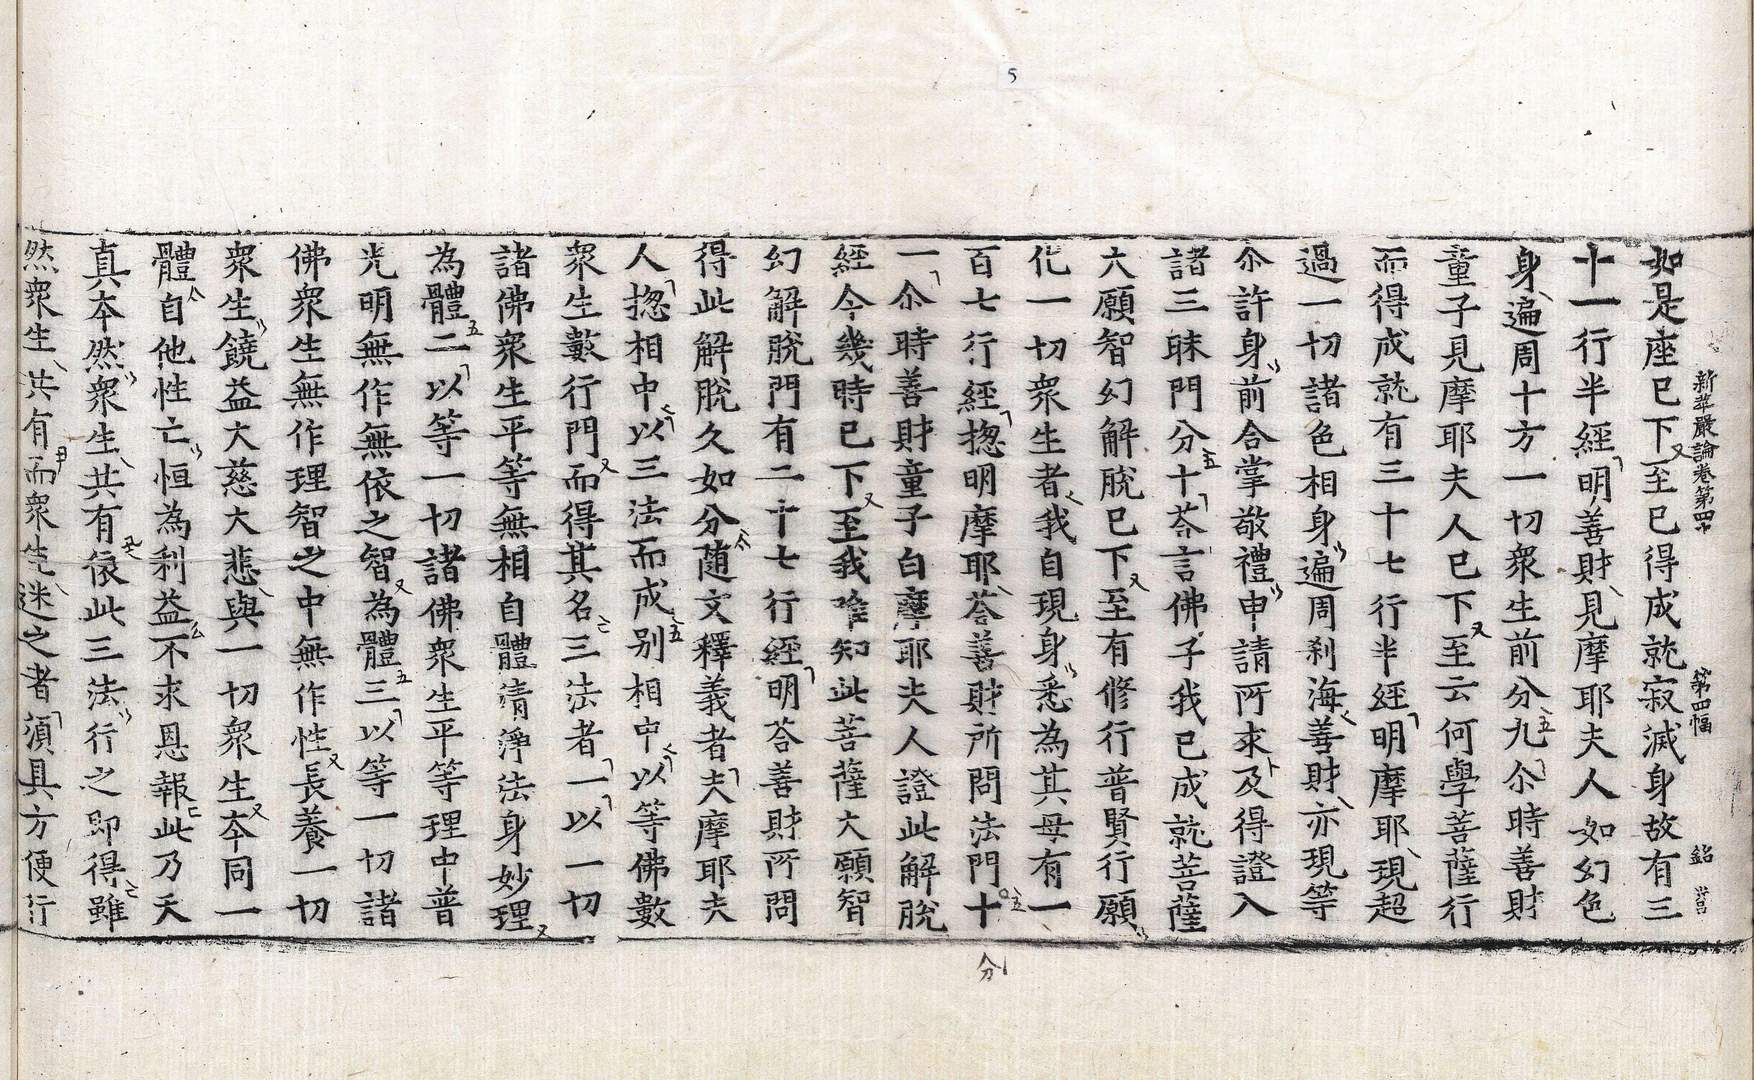 5
新華嚴論卷第四十 第四幅 鉛
如是座已下至已得成就寂滅身故有三
十一行半經明善財見摩耶夫人如幻色
身遍周十方一切衆生前分九尒時善財
童子見摩耶夫人已下至云何學菩薩行
而得成就有三十七行半經明摩耶現超
過一切諸色相身遍周刹海善財亦現等
尒許身前合掌敬禮申請所求及得證入
諸三昧門分十荅言佛子我已成就菩薩
大願智幻解脫已下至有修行普賢行願
化一切衆生者我自現身悉為其母有一
百七行經揔明摩耶荅善財所問法門十
分
一尒時善財童子白摩耶夫人證此解脫
經今幾時已下至我唯知此菩薩大願智
幻解脫門有二十七行經明荅善財所問
得此解脫久如分随文釋義者夫摩耶夫
人揔相中以三法而成別相中以等佛數
衆生數行門而得其名三法者一以一切
諸佛衆生平等無相自體清淨法身妙理
為體二以等一切諸佛衆生平等理中普
光明無作無依之智為體三以等一切諸
佛衆生無作理智之中無作性長養一切
衆生饒益大慈大悲與一切衆生夲同一
體自他性亡恒為利益不求恩報此乃天
真夲然衆生共有依此三法行之即得雖
然衆生共有而衆生迷之者須具方便行